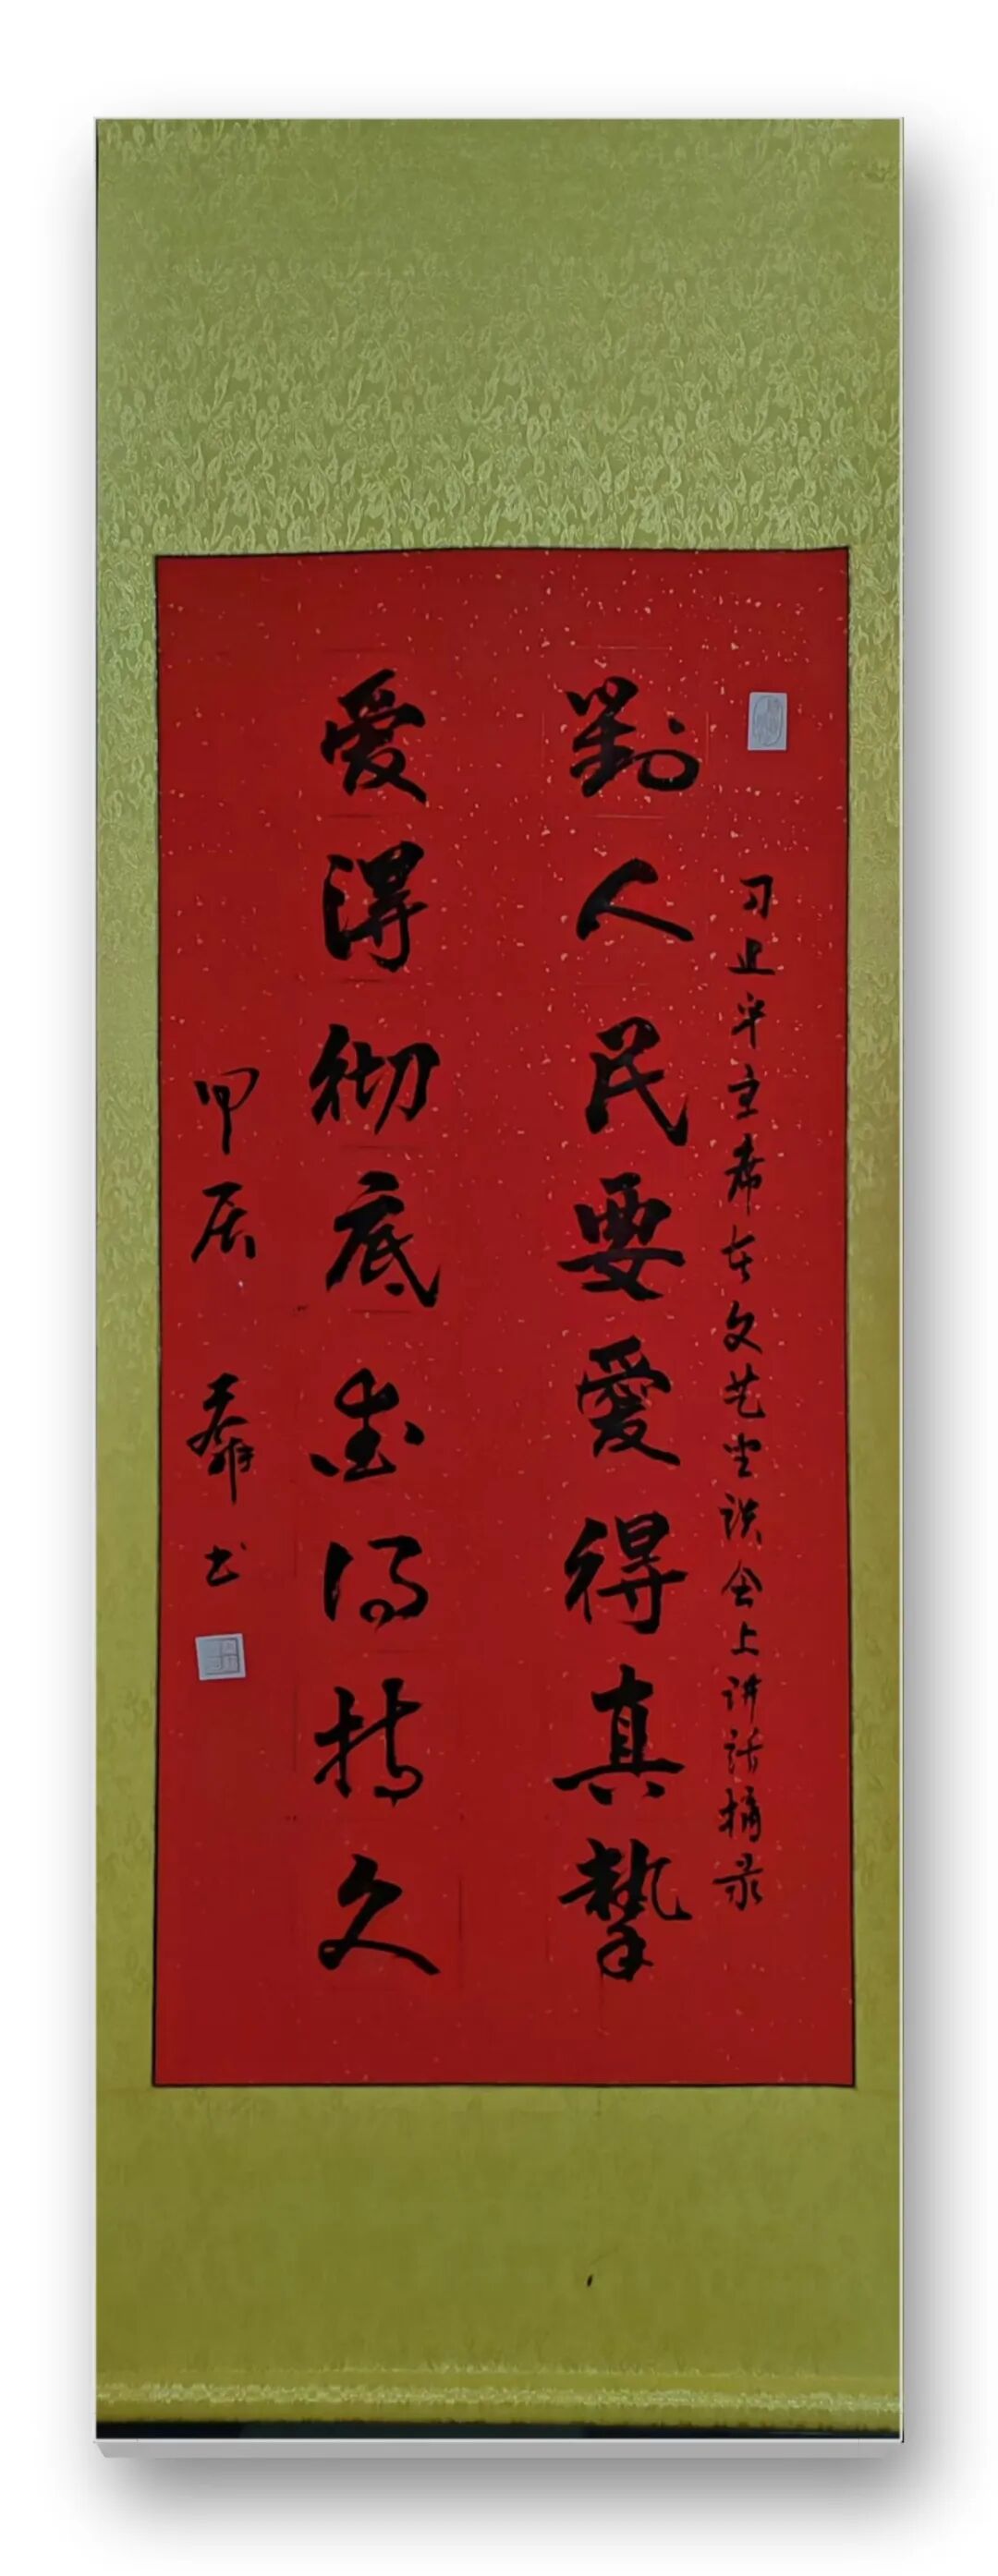 习近平主席在文艺坐谈会上讲话摘录
對人民要愛得真摯
爱得彻底爱得持久
甲辰 书